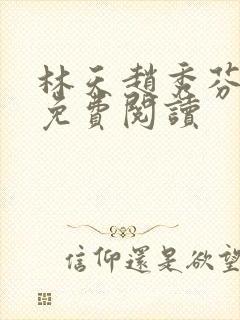 林天趙秀芬
免費閱讀
信仰還是欲望